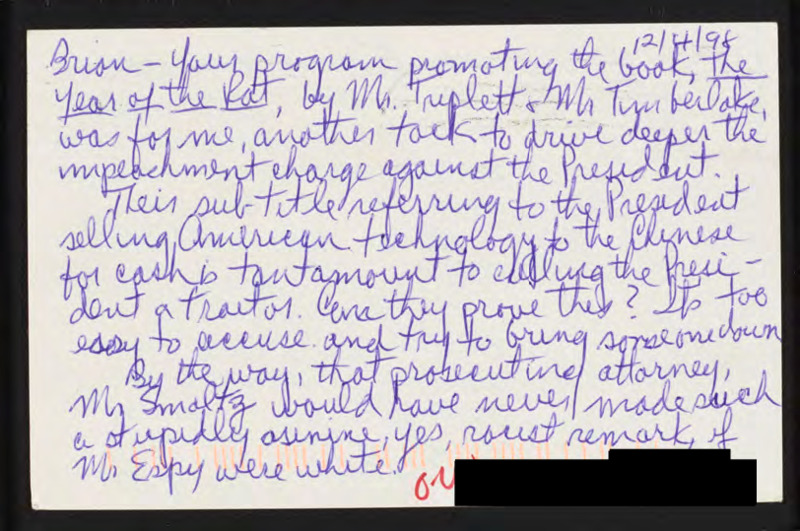 12/4/98
Brian – Your program promoting the book, the
Year of the Rat, by Mr. Triplett & Mr Timberlake,
was for me, another tack to drive deeper the
impeachment charge against the President.
Their sub-title referring to the President
selling American technology to the Chinese
for cash is tantamount to calling the Presi-
dent a traitor. Can they prove this? It's too
easy to accuse and try to bring someone down
By the way, that prosecuting attorney,
Mr Smaltz would have never made such
a stupidly asinine, yes, racist remark, if
Mr Espy were white.